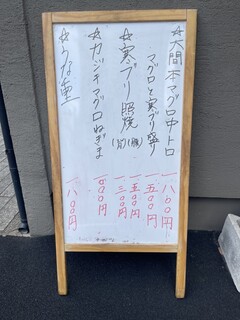 ☆大間本マグロ中トロ 一八〇〇円
マグロと寒ブリ盛り 一五〇〇円
☆寒ブリ照焼 (腹) 一五〇〇円
(切) 一三〇〇円
☆カジキマグロねぎま 一〇〇〇円
☆うな重 一八〇〇円